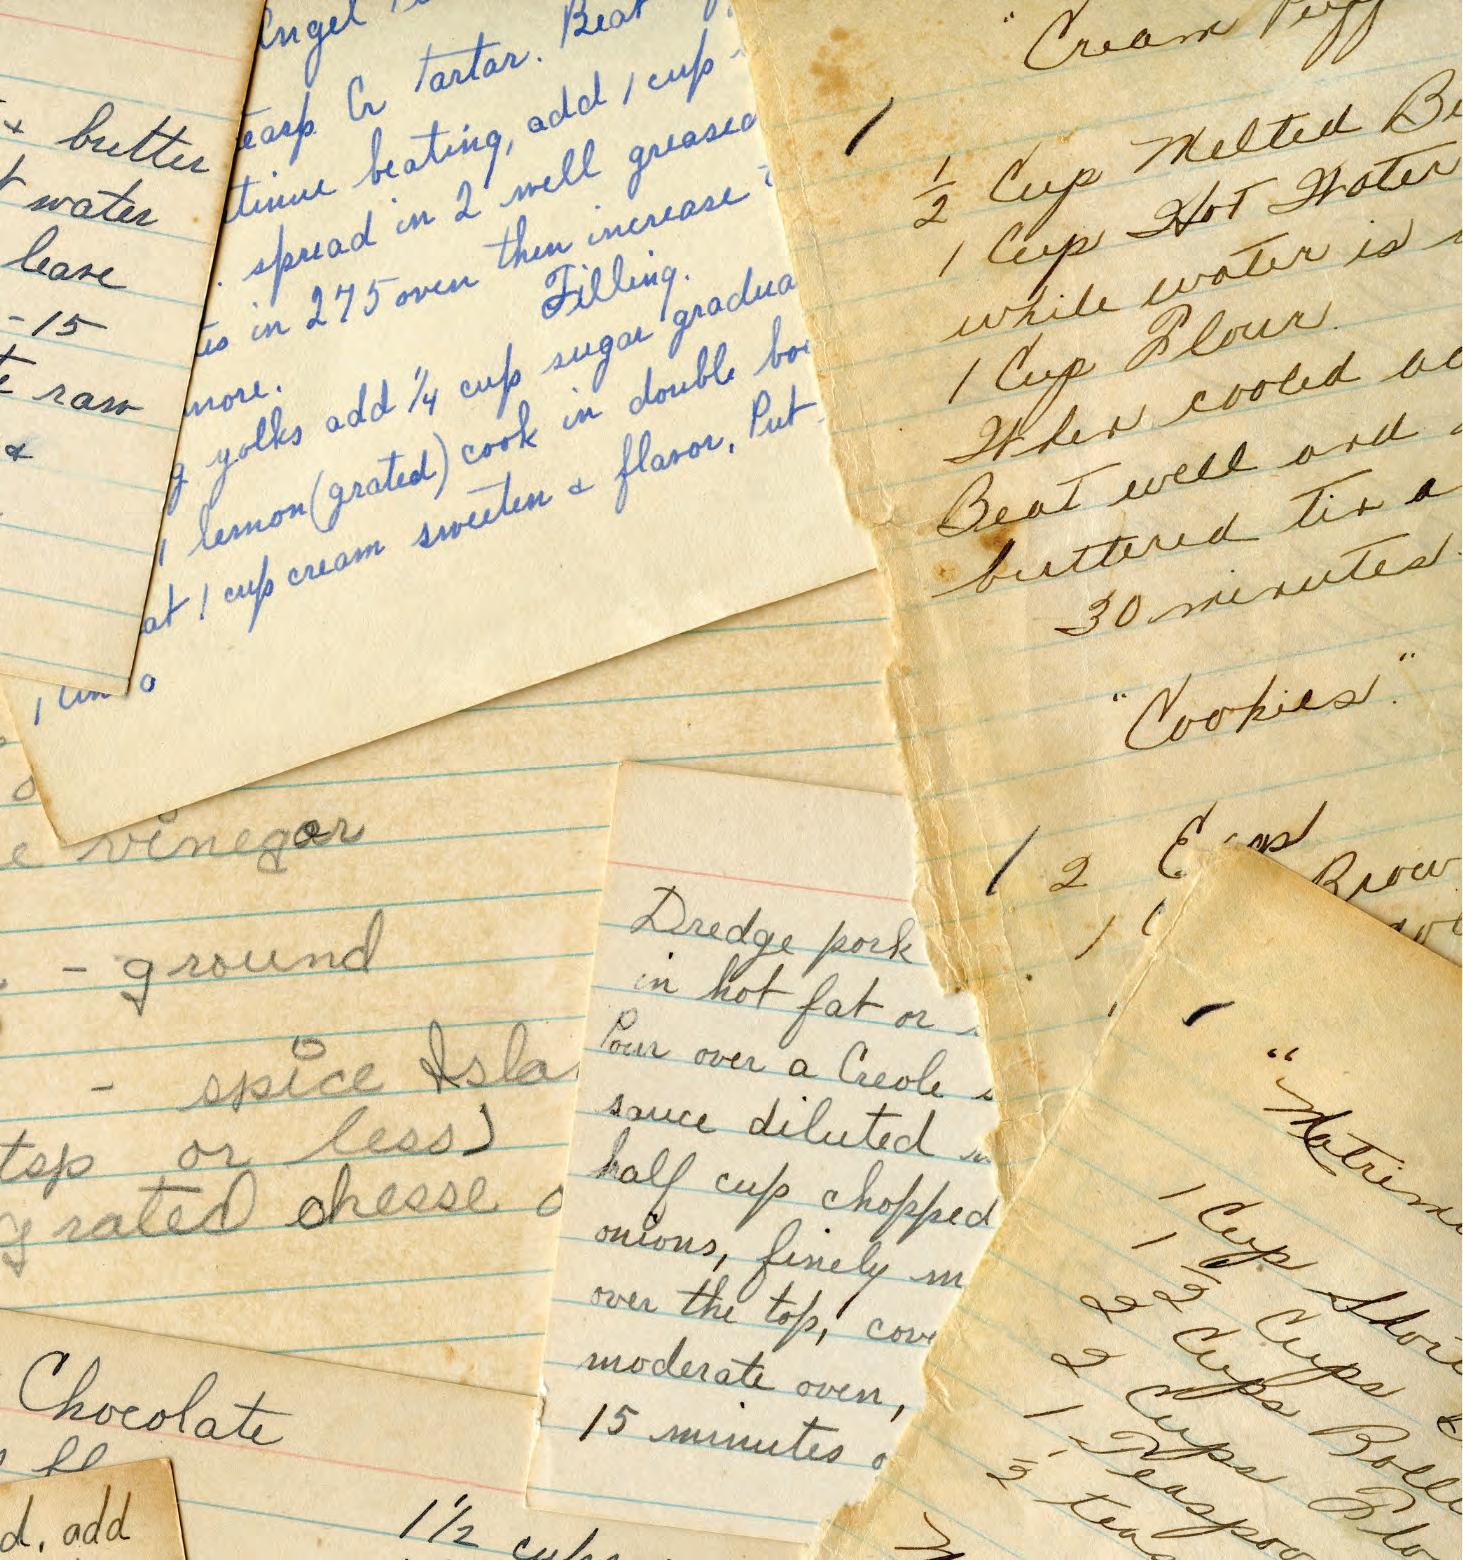 & butter
water
leave
-15
raw
&
Angel
Cr tartar. Beat
beating, add 1 cup
spread in 2 well greased
in 275 oven then increase
more.
Filling.
yolks add 1/4 cup sugar gradua
1 lemon (grated) cook in double boi
at 1 cup cream sweeten & flavor. Put
"Cream Puff
1/2 Cup Melted Bu
1 Cup Hot Water
while water is
1 Cup Flour.
When cooled ad
Beat well and
buttered tin a
30 minutes
"Cookies".
2 Eggs
1 Brow
vinegar
- ground
- spice Isla
tsp or less)
grated chesse
Dredge pork
in hot fat or
Pour over a Creole
sauce diluted
half cup chopped
onions, finely m
over the top, cove
moderate oven,
15 minutes
"Matrim
1 Cup Shor
1 1/2 Cups
2 Cups Rolle
2 Cups Flo
1 Teaspoo
1/2 tea
Chocolate
d, add
1 1/2 cups